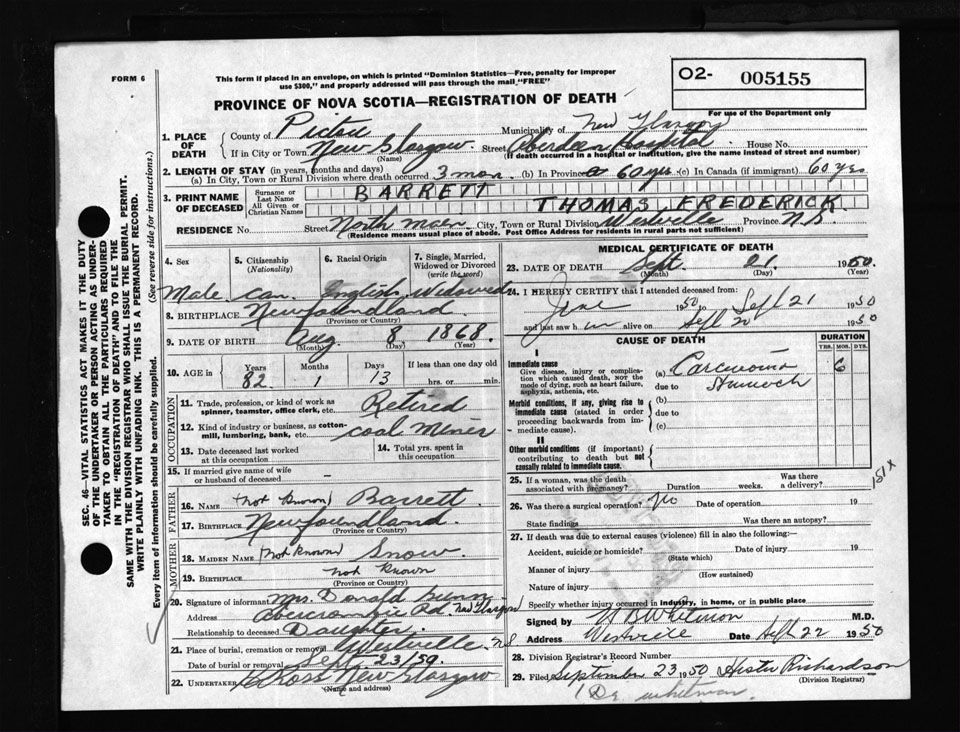 FORM 6
This form if placed in an envelope, on which is printed "Dominion Statistics—Free, penalty for improper
use $300," and properly addressed will pass through the mail "FREE"
O2- 005155
For use of the Department only
PROVINCE OF NOVA SCOTIA—REGISTRATION OF DEATH
1. PLACE OF DEATH
County of Pictou Municipality of New Glasgow
If in City or Town New Glasgow Street Aberdeen Hospital House No.
(Name) (If death occurred in a hospital or institution, give the name instead of street and number)
2. LENGTH OF STAY (in years, months and days)
(a) In City, Town or Rural Division where death occurred 3 mon. (b) In Province 60 yrs (c) In Canada (if immigrant) 60 yrs
3. PRINT NAME OF DECEASED
Surname or Last Name BARRETT
All Given or Christian Names THOMAS FREDERICK
RESIDENCE No. Street North Main City, Town or Rural Division Westville Province N.S.
(Residence means usual place of abode. Post Office Address for residents in rural parts not sufficient)
4. Sex
5. Citizenship (Nationality)
6. Racial Origin
7. Single, Married, Widowed or Divorced (write the word)
Male Can. English Widowed
8. BIRTHPLACE Newfoundland
(Province or Country)
9. DATE OF BIRTH Aug. 8, 1868
(Month) (Day) (Year)
10. AGE in Years Months Days If less than one day old
82 1 13 hrs. or min.
OCCUPATION
11. Trade, profession, or kind of work as spinner, teamster, office clerk, etc. Retired
12. Kind of industry or business, as cotton-mill, lumbering, bank, etc. coal Miner
13. Date deceased last worked at this occupation
14. Total yrs. spent in this occupation
15. If married give name of wife or husband of deceased
FATHER
16. Name (not known) Barrett
17. Birthplace Newfoundland.
(Province or Country)
MOTHER
18. Maiden Name (not known) Snow.
19. Birthplace not known
(Province or Country)
20. Signature of informant Mrs. Donald Gunn
Address Abercrombie Rd. New Glasgow
Relationship to deceased Daughter
21. Place of burial, cremation or removal Westville. N.S
Date of burial or removal Sept. 23/50.
22. Undertaker Ross New Glasgow
(Name and address)
MEDICAL CERTIFICATE OF DEATH
23. DATE OF DEATH Sept. 21 1950.
(Month) (Day) (Year)
24. I HEREBY CERTIFY that I attended deceased from:
June 1950 to Sept 21 1950
and last saw him alive on Sept 20 1950
CAUSE OF DEATH
DURATION
YRS. MOS. DYS.
I
Immediate cause
Give disease, injury or complication which caused death, NOT the mode of dying, such as heart failure, asphyxia, asthenia, etc.
(a) Carcinoma 6
due to Stomach
Morbid conditions, if any, giving rise to immediate cause (stated in order proceeding backwards from immediate cause).
(b)
due to
(c)
II
Other morbid conditions (if important) contributing to death but not causally related to immediate cause.
25. If a woman, was the death associated with pregnancy? Duration weeks. Was there a delivery?
151X
26. Was there a surgical operation? No Date of operation 19
State findings Was there an autopsy?
27. If death was due to external causes (violence) fill in also the following:—
Accident, suicide or homicide? Date of injury 19
(State which)
Manner of injury
(How sustained)
Nature of injury
Specify whether injury occurred in industry, in home, or in public place
Signed by Whitman M.D.
Address Westville Date Sept 22 1950
28. Division Registrar's Record Number
29. Filed September 23 1950 Hester Richardson
(Division Registrar)
Dr. Whitman.
SEC. 46—VITAL STATISTICS ACT MAKES IT THE DUTY
OF THE UNDERTAKER OR PERSON ACTING AS UNDER-
TAKER TO OBTAIN ALL THE PARTICULARS REQUIRED
IN THE "REGISTRATION OF DEATH" AND TO FILE THE
SAME WITH THE DIVISION REGISTRAR WHO SHALL ISSUE THE BURIAL PERMIT.
WRITE PLAINLY WITH UNFADING INK. THIS IS A PERMANENT RECORD.
Every item of information should be carefully supplied. (See reverse side for instructions.)